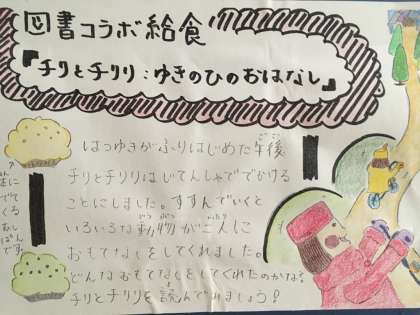 図書コラボ給食
『チリとチリリ：ゆきのひのおはなし』
はつゆきがふりはじめた午後
ごご
チリとチリリはじてんしゃででかける
ことにしました。すすんでいくと
いろいろな動物が二人に
どうぶつ
ふたり
おもてなしをしてくれました。
どんなおもてなしをしてくれたのかな？
チリとチリリを読んでみましょう！
よ
本に
ほん
でてくる
むしぱん
です